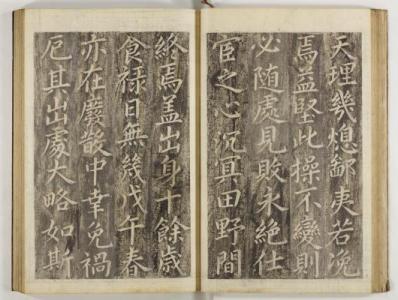 天理幾熄鄙夷若浼
焉益堅此操不變則
必随處見敗永絶仕
宦之心沉冥田野間
終焉盖出身十餘歳
食禄日無幾戊午春
亦在嚴散中幸免禍
厄其出處大略如斯